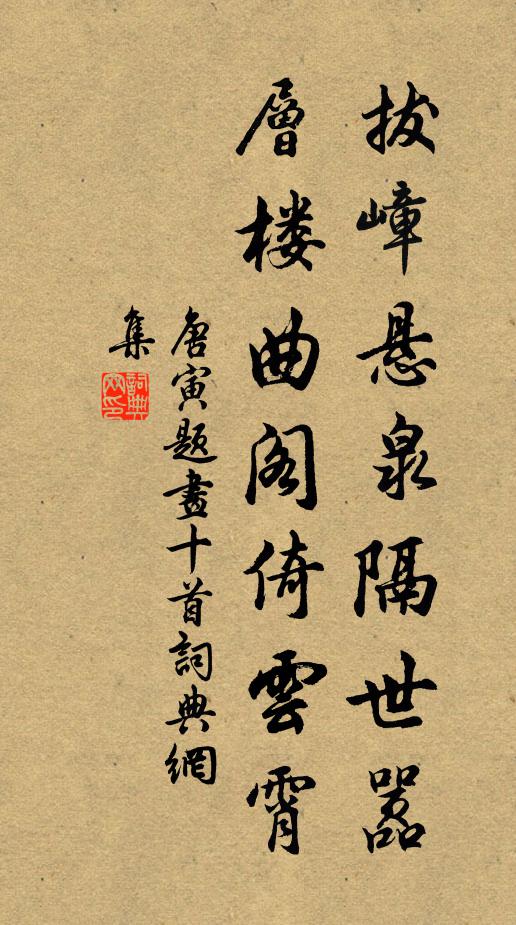 拔嶂悬泉隔世嚣
層楼曲阁倚雲霄
唐寅题畫十首詞典網
集
詞典網印